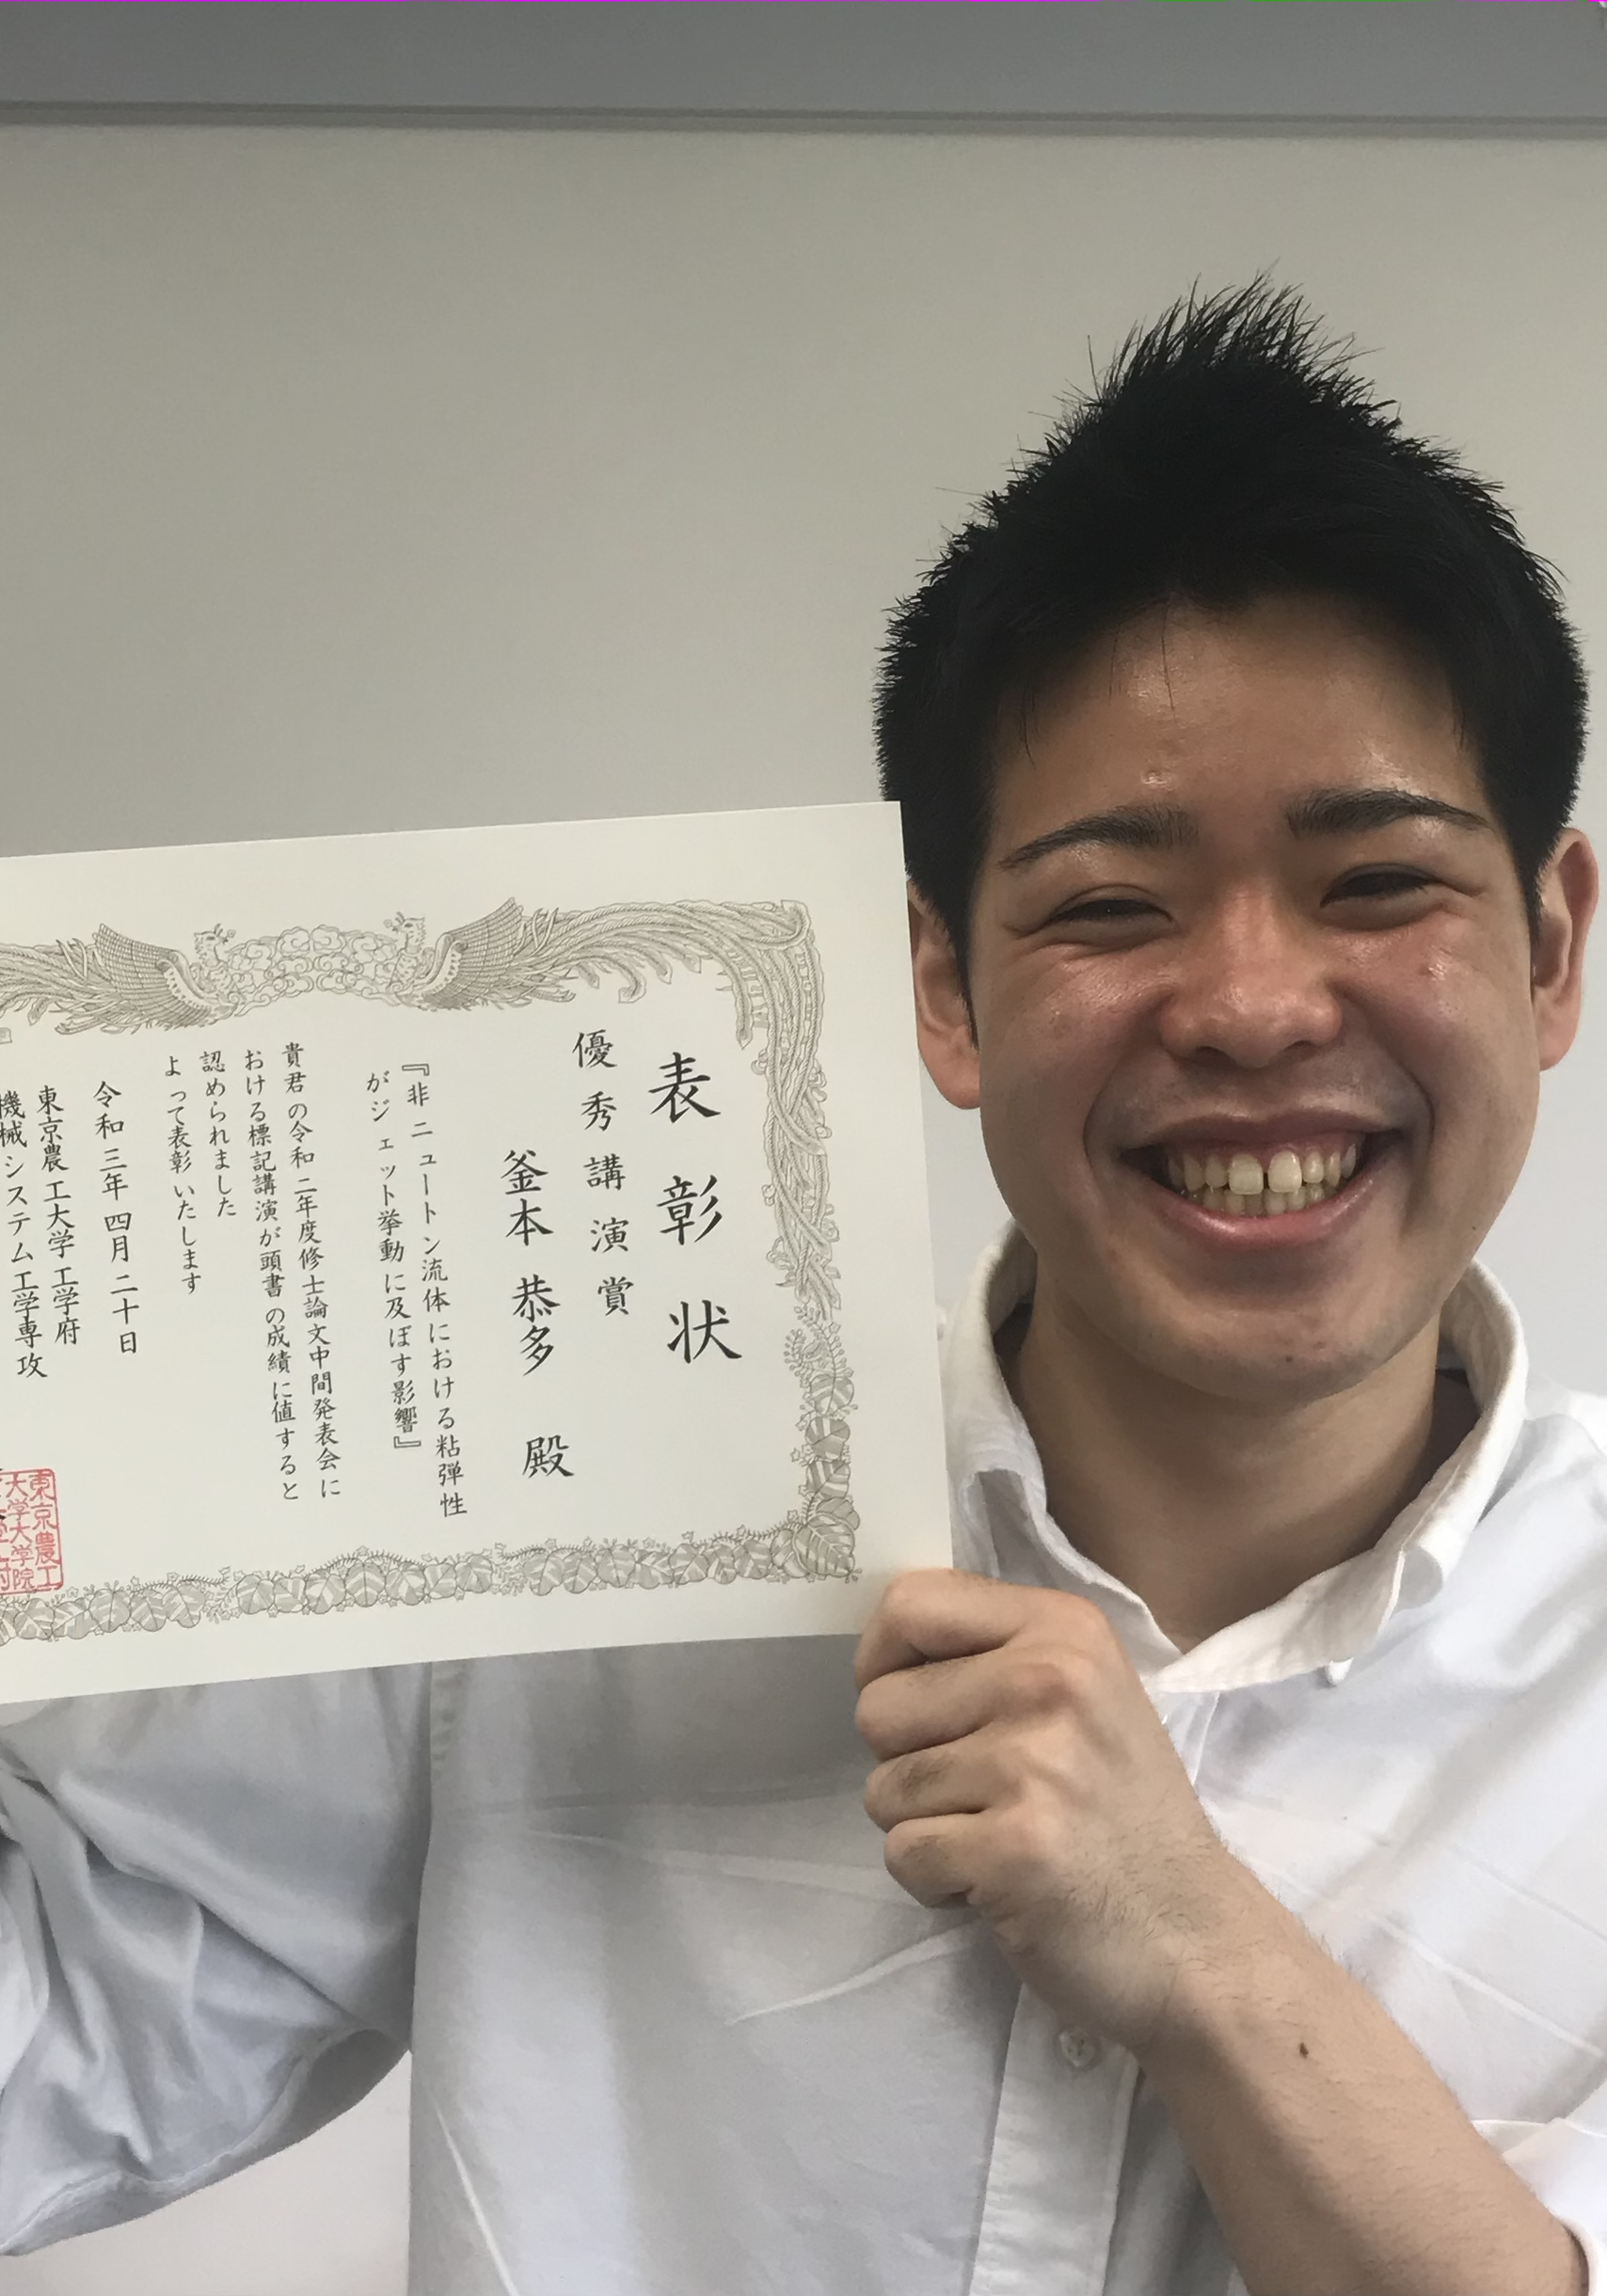 表彰状
優秀講演賞
釜本 恭多 殿
『非ニュートン流体における粘弾性
がジェット挙動に及ぼす影響』
貴君の令和二年度修士論文中間発表会に
おける標記講演が頭書の成績に値すると
認められました
よって表彰いたします
令和三年四月二十日
東京農工大学 工学府
機械システム工学専攻
東京農工
大学大学院